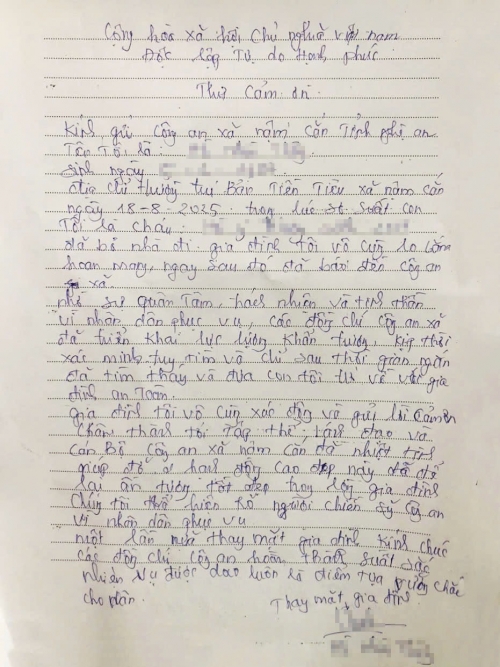 Cộng hòa xã hội Chủ nghĩa việt nam
Độc lập Tự do Hạnh phúc
Thư Cảm ơn
Kính gửi Công an xã nậm cắn Tỉnh nghệ an
Tên Tôi là :
sinh ngày
địa chỉ thường trú Bản Tiền Tiêu xã nậm cắn
ngày 18-8-2025 trong lúc sơ suất con
Tôi là cháu :
đã bỏ nhà đi. gia đình tôi vô cùng lo lắng
hoan mang, ngay sau đó đã báo đến công an
xã.
nhờ sự quan Tâm, trách nhiệm và tinh thần
vì nhân dân phục vụ, các đồng chí công an xã
đã triển khai lực lượng khẩn trương, kịp thời
xác minh truy tìm và chỉ sau thời gian ngắn
đã tìm thấy và đưa con tôi trở về với gia
đình an Toàn.
gia đình tôi vô cùng xúc động và gửi lời cảm ơn
chân thành tới Tập thể lãnh đạo và
cán Bộ công an xã nậm cắn đã nhiệt tình
giúp đỡ hành động cao đẹp này đã để
lại ấn tượng tốt đẹp trong lòng gia đình
Chúng tôi thể hiện rõ người chiến sỹ công an
vì nhân dân phục vụ
một lần nữa thay mặt gia đình kính chúc
các đồng chí công an hoàn thành suất sắc
nhiệm vụ được giao luôn là điểm tựa vững chắc
cho dân.
Thay mặt gia đình